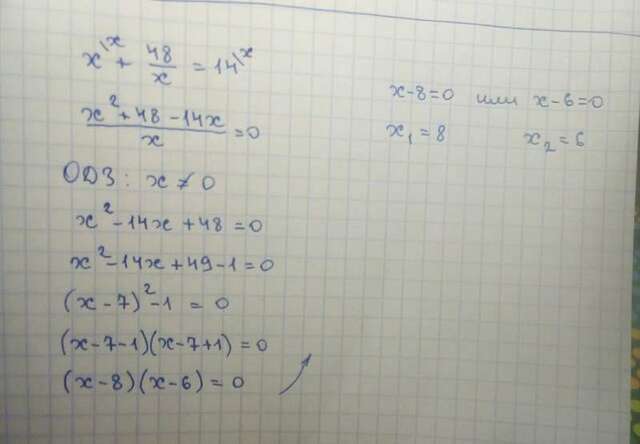 x\x + 48/x = 14\x
(x² + 48 - 14x)/x = 0
ОДЗ: x ≠ 0
x² - 14x + 48 = 0
x² - 14x + 49 - 1 = 0
(x - 7)² - 1 = 0
(x - 7 - 1)(x - 7 + 1) = 0
(x - 8)(x - 6) = 0
x - 8 = 0 или x - 6 = 0
x₁ = 8 x₂ = 6